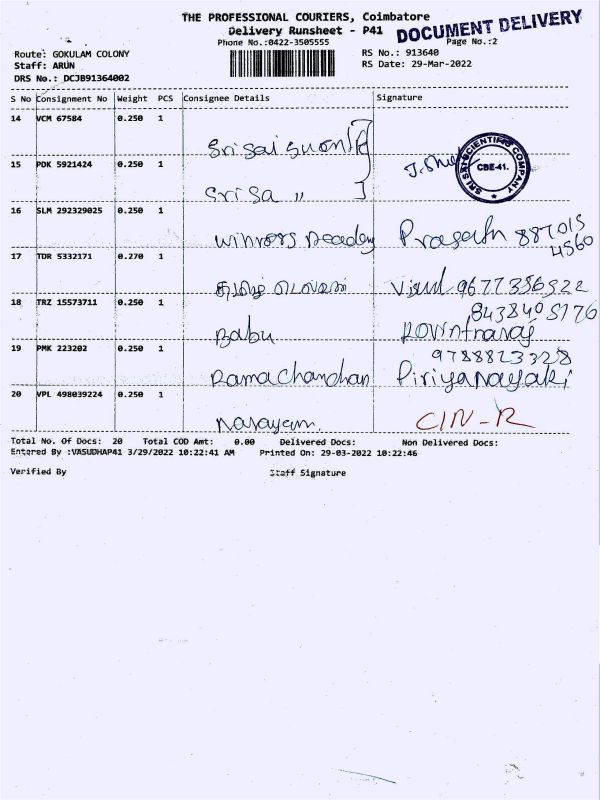 THE PROFESSIONAL COURIERS, Coimbatore
Delivery Runsheet - P41
DOCUMENT DELIVERY
Phone No.:0422-3505555
Page No.:2
Route: GOKULAM COLONY
RS No.: 913640
Staff: ARUN
RS Date: 29-Mar-2022
DRS No.: DCJB91364002
S No Consignment No Weight PCS Consignee Details Signature
14 VCM 67584 0.250 1
Sri Sai
15 PDK 5921424 0.250 1
SRI SAI SCIENTIFIC COMPANY CBE-41.
Sri Sa "
16 SLM 292329025 0.250 1
Winners Prasath 887015
4560
17 TDR 5332171 0.270 1
தமிழ் 9677356322
18 TRZ 15573711 0.250 1
8438405176
Babu
19 PMK 223202 0.250 1
9788823328
Ramachandran Piriyanayaki
20 VPL 498039224 0.250 1
Narayan CIN-R
Total No. Of Docs: 20 Total COD Amt: 0.00 Delivered Docs: Non Delivered Docs:
Entered By :VASUDHAP41 3/29/2022 10:22:41 AM Printed On: 29-03-2022 10:22:46
Verified By Staff Signature